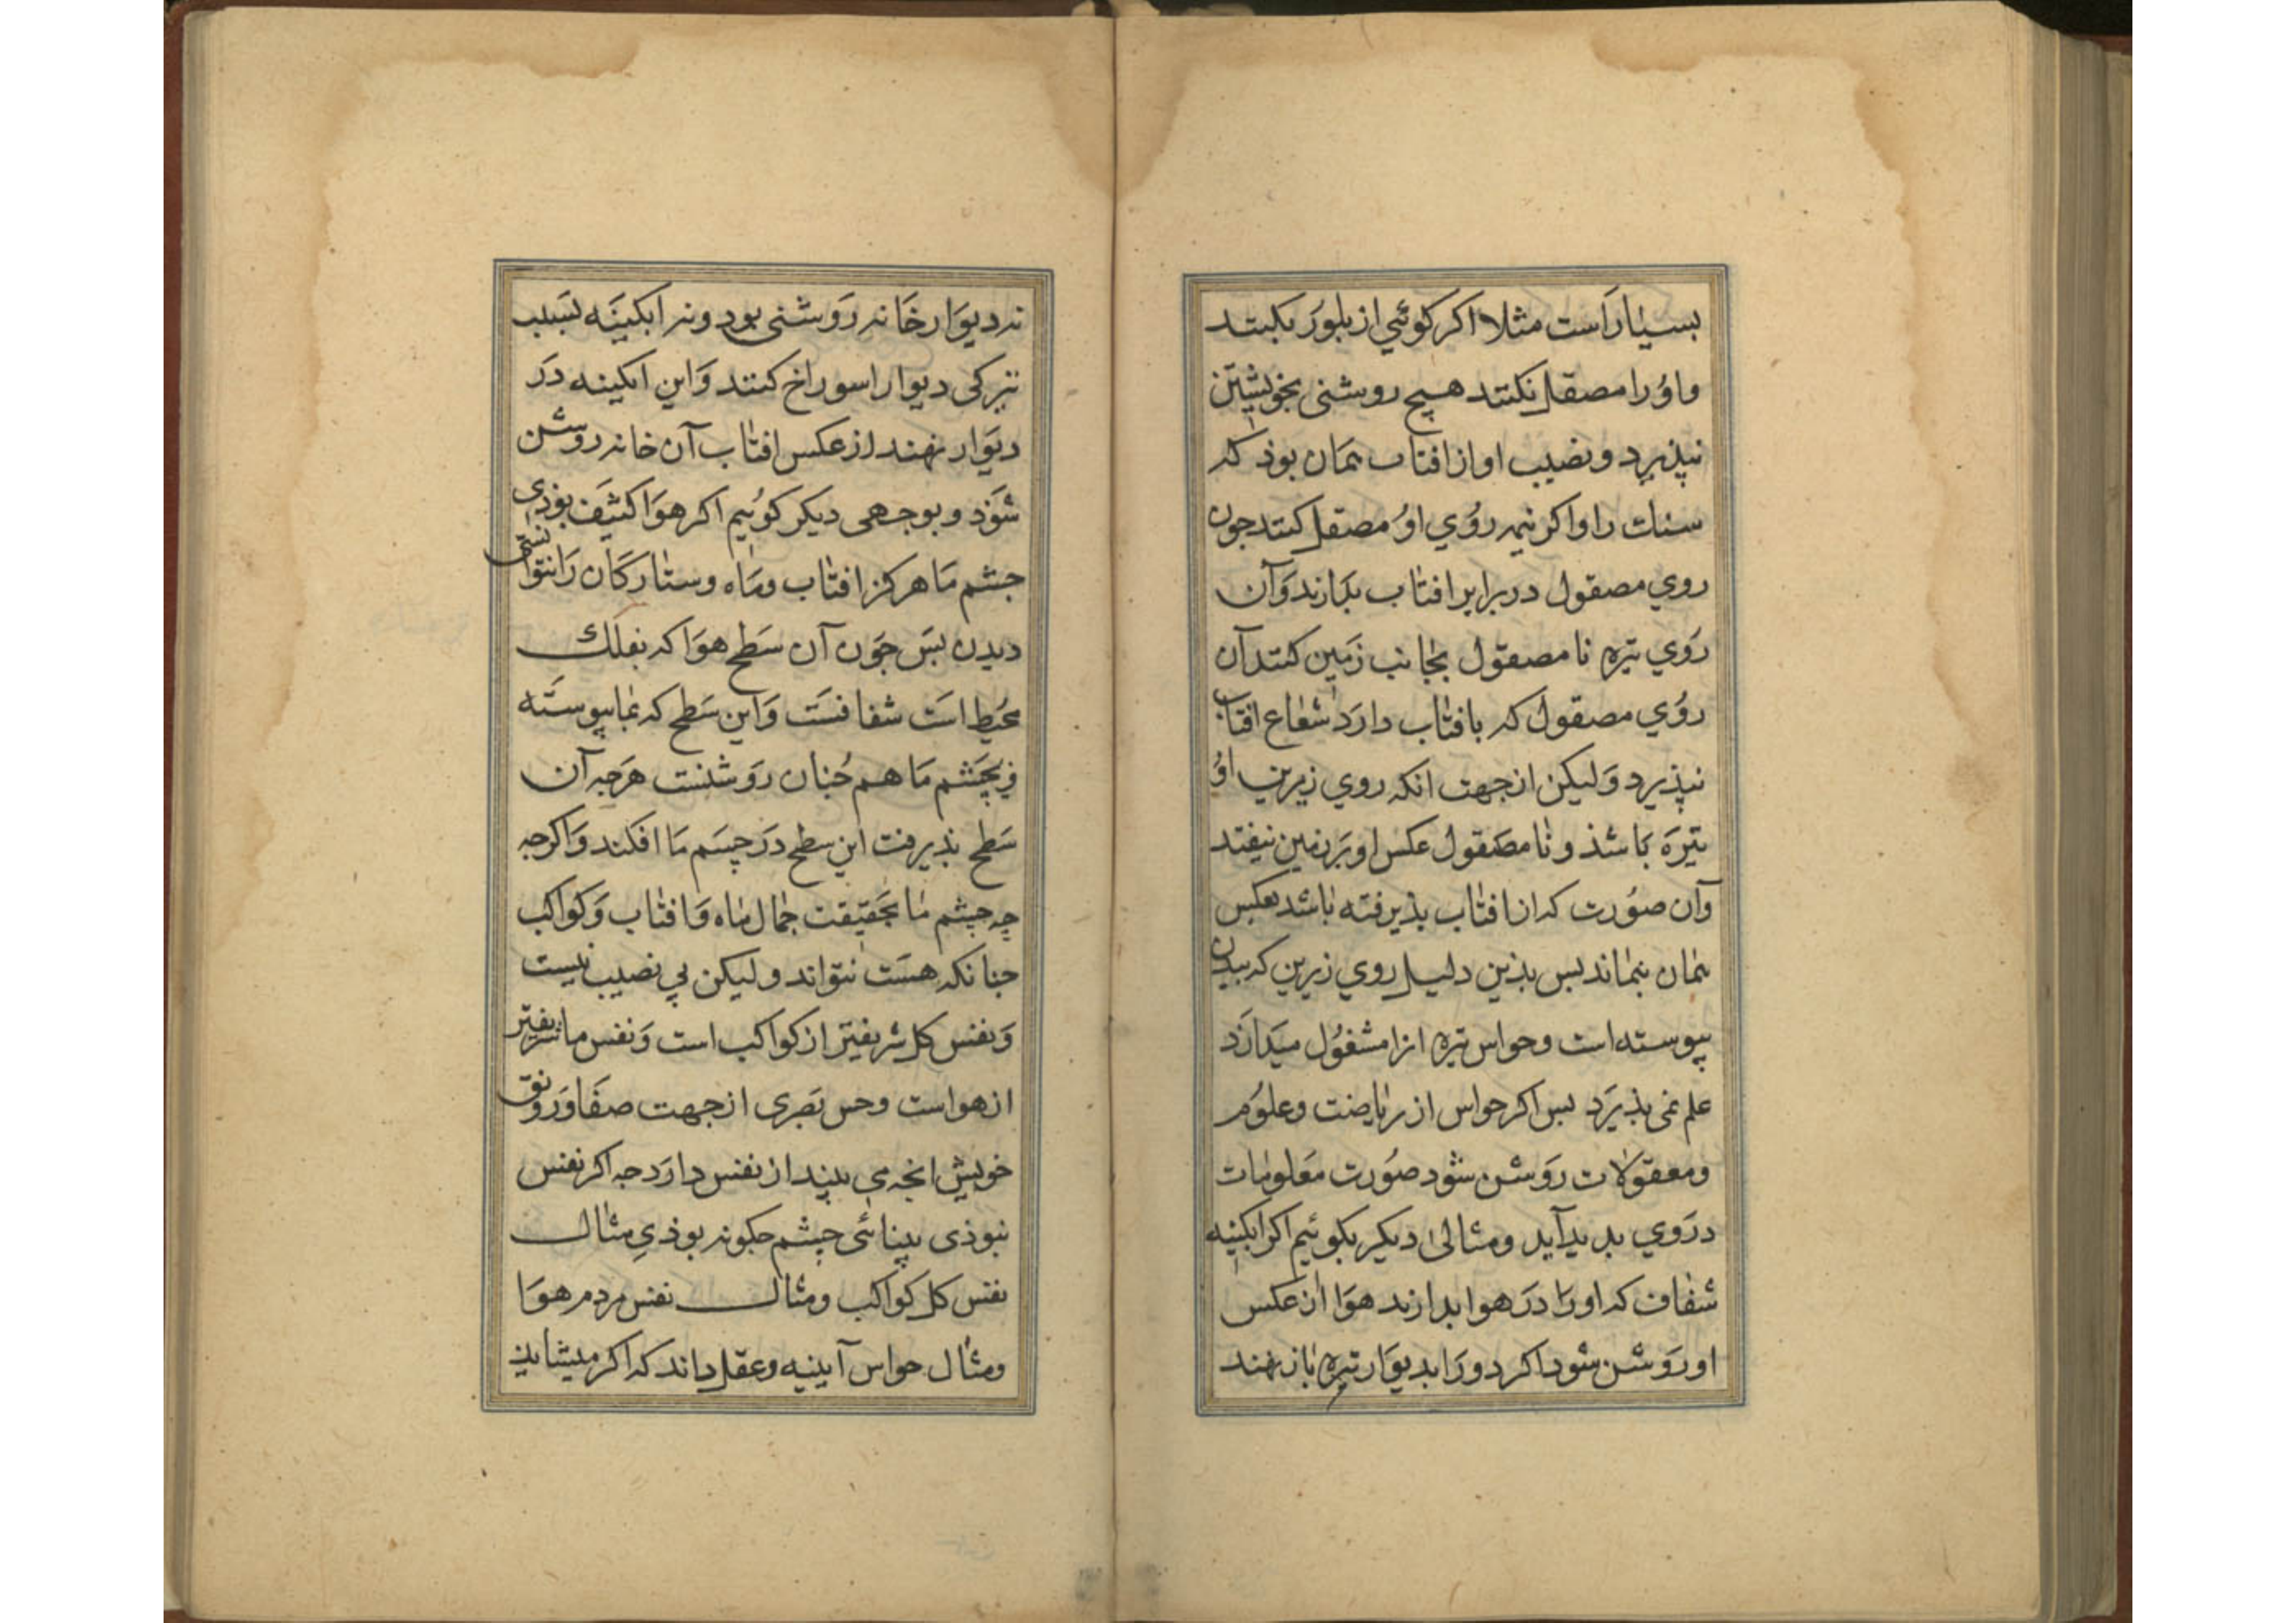 بسیار است مثلا اکر کوئی از بلور بکنند
واو را مصقل نکنند هیچ روشنی بخویشتن
نپذیرد و نصیب او از افتاب همان بوذ که
سنك را و اکر نیمه روی او مصقل کنند جون
روی مصقول در برابر افتاب بدارند و آن
روی تیره نا مصقول بجانب زمین کنند آن
روی مصقول که بافتاب دارد شعاع افتاب
نپذیرد ولیکن از جهت انکه روی زیرین او
تیره باشذ و نا مصقول عکس او بر زمین نیفتد
وآن صورت که از افتاب بذیرفته باشد بعکس
همان بنماند بس بذین دلیل روی زیرین که ببدن
پیوسته است و حواس تیره انرا مشغول میدارد
علم نمی بذیرد بس اکر حواس از ریاضت و علوم
و معقولات روشن شود صورت معلومات
در وی بدید آید و مثالی دیکر بکوئیم اکر ابکینه
شفاف که او را در هوا بدارند هوا از عکس
او روشن شود اکر دو را بدیوار تیره باز نهند
نه دیوار خانه روشنی بود و نه ابکینه بسبب
تیرکی دیوار اسوراخ کنند و این ابکینه در
دیوار نهند از عکس افتاب آن خانه روشن
شوذ و بوجهی دیکر کوئیم اکر هوا کثیف بوذی
جشم ما هرکز افتاب و ماه و ستارکان را نتوانستی
دیدن بس جون آن سطح هوا که بفلك
محیط است شفافست و این سطح که بما پیوسته
جشم ما هم جنان روشنست هرجه آن
سطح بذیرفت این سطح در جشم ما افکند و اکرجه
چه جشم ما بحقیقت جمال ماه و افتاب و کواکب
جنانکه هست نتواند ولیکن بی نصیب نیست
و نفس کل شریفتر از کواکب است و نفس ما شریفتر
از هواست و حس بصری از جهت صفا و رونق
خویش انجه می بیند از نفس دارد جه اکر نفس
نبوذی بینائی جشم جکونه بوذی مثال
نفس کل کواکب و مثال نفس مردم هوا
و مثال حواس آیینه و عقل داند که اکر